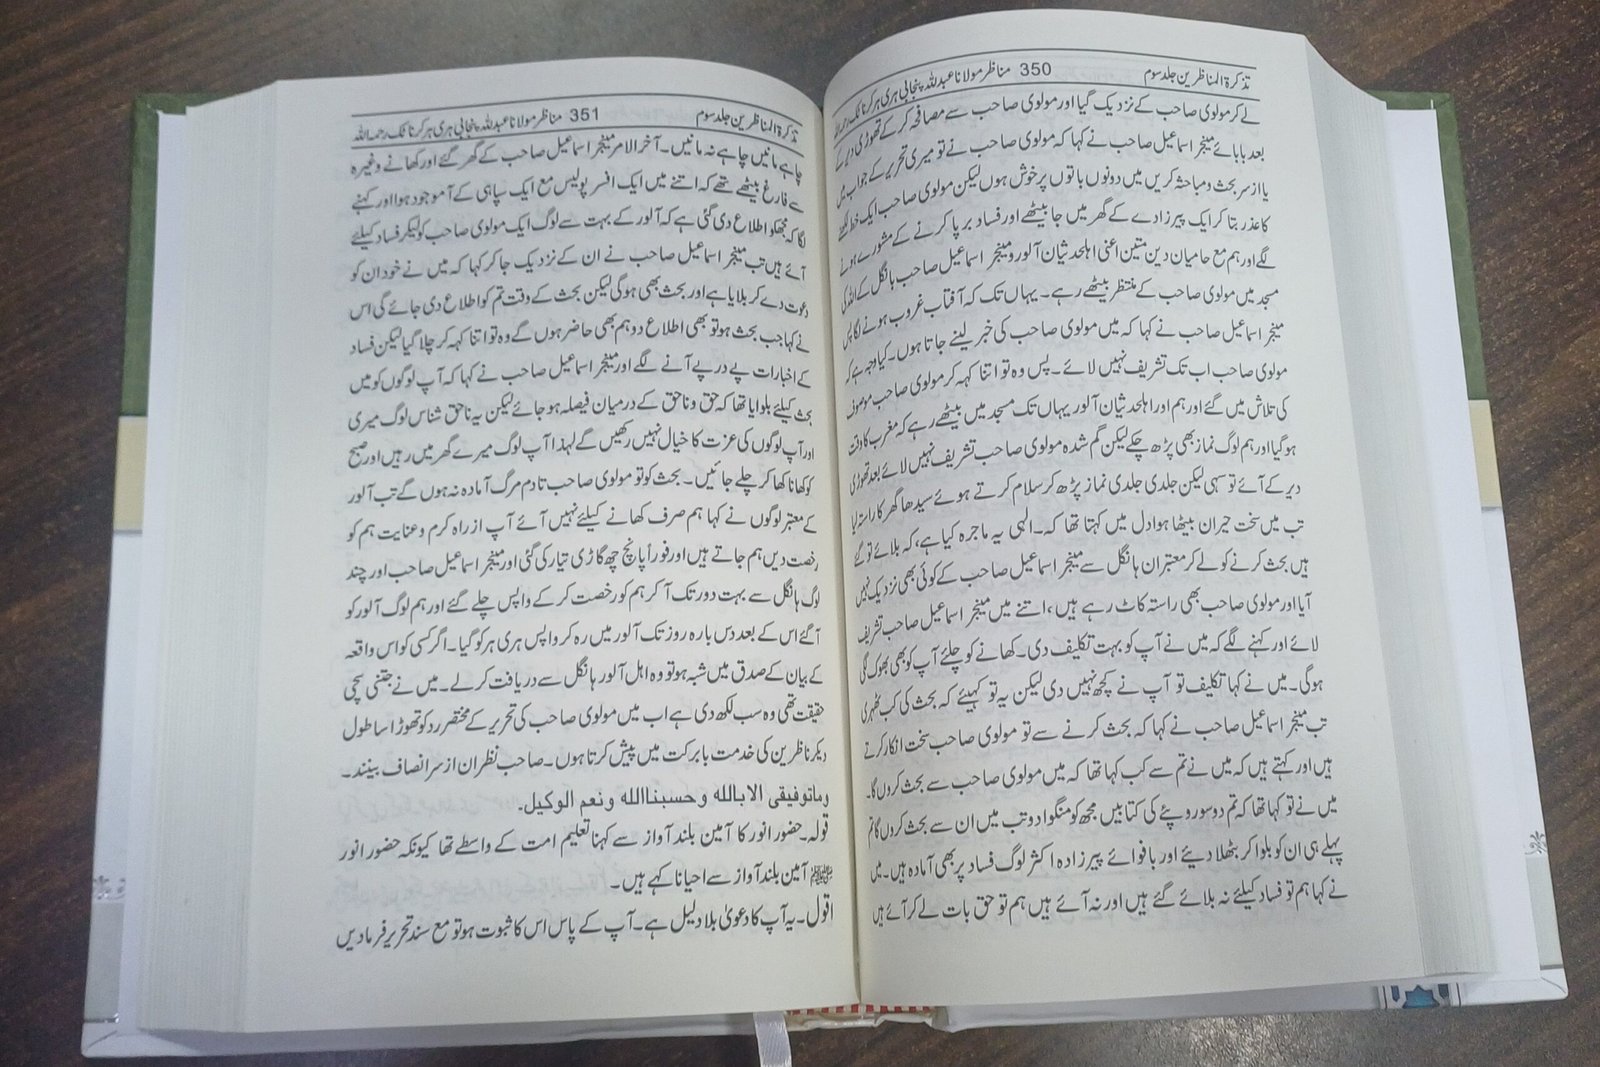 تذکرۃ المناظرین جلد سوم 350 مناظر مولانا عبداللہ پنجابی ہری ہر کرناٹک رحمہ اللہ
لے کر مولوی صاحب کے نزدیک گیا اور مولوی صاحب سے مصافحہ کر کے تھوڑی دیر کے
بعد بابائے مینجر اسماعیل صاحب نے کہا کہ مولوی صاحب نے تو میری تحریر کے جواب میں
یا از سر بحث ومباحثہ کریں میں دونوں باتوں پر خوش ہوں لیکن مولوی صاحب ایک خط لکھنے
کا عذر بتا کر ایک پیرزادے کے گھر میں جا بیٹھے اور فساد برپا کرنے کے مشورے ہونے
لگے اور ہم مع حامیان دین متین اعنی اہلحدیثان آلور و مینجر اسماعیل صاحب ہانگل کے اللہ کی
مسجد میں مولوی صاحب کے منتظر بیٹھے رہے۔ یہاں تک کہ آفتاب غروب ہونے لگا پس
مینجر اسماعیل صاحب نے کہا کہ میں مولوی صاحب کی خبر لینے جاتا ہوں۔ کیا وجہ ہے کہ
مولوی صاحب اب تک تشریف نہیں لائے۔ پس وہ تو اتنا کہہ کر مولوی صاحب موصوف
کی تلاش میں گئے اور ہم اور اہلحدیثان آلور یہاں تک مسجد میں بیٹھے رہے کہ مغرب کا وقت
ہو گیا اور ہم لوگ نماز بھی پڑھ چکے لیکن گم شدہ مولوی صاحب تشریف نہیں لائے بعد تھوڑی
دیر کے آئے تو سہی لیکن جلدی جلدی نماز پڑھ کر سلام کرتے ہوئے سیدھا گھر کا راستہ لیا
تب میں سخت حیران بیٹھا ہوا دل میں کہتا تھا کہ۔ الٰہی یہ ماجرہ کیا ہے، کہ بلائے تو گئے
ہیں بحث کرنے کو لے کر معتبران ہانگل سے مینجر اسماعیل صاحب کے کوئی بھی نزدیک نہیں
آیا اور مولوی صاحب بھی راستہ کاٹ رہے ہیں، اتنے میں مینجر اسماعیل صاحب تشریف
لائے اور کہنے لگے کہ میں نے آپ کو بہت تکلیف دی۔ کھانے کو چلئے آپ کو بھی بھوک لگی
ہوگی۔ میں نے کہا تکلیف تو آپ نے کچھ نہیں دی لیکن یہ تو کہیئے کہ بحث کی کب ٹھہری
تب مینجر اسماعیل صاحب نے کہا کہ بحث کرنے سے تو مولوی صاحب سخت انکار کرتے
ہیں اور کہتے ہیں کہ میں نے تم سے کب کہا تھا کہ میں مولوی صاحب سے بحث کروں گا۔
میں نے تو کہا تھا کہ تم دو سو روپئے کی کتابیں مجھ کو منگوا دو تب میں ان سے بحث کروں گا تم
پہلے ہی ان کو بلوا کر بٹھلا دیئے اور بافوائے پیرزادہ اکثر لوگ فساد پر بھی آمادہ ہیں۔ میں
نے کہا ہم تو فساد کیلئے نہ بلائے گئے ہیں اور نہ آئے ہیں ہم تو حق بات لے کر آئے ہیں
تذکرۃ المناظرین جلد سوم 351 مناظر مولانا عبداللہ پنجابی ہری ہر کرناٹک رحمہ اللہ
چاہے مانیں چاہے نہ مانیں۔ آخر الامر مینجر اسماعیل صاحب کے گھر گئے اور کھانے وغیرہ
سے فارغ بیٹھے تھے کہ اتنے میں ایک افسر پولیس مع ایک سپاہی کے آموجود ہوا اور کہنے
لگا کہ مجھکو اطلاع دی گئی ہے کہ آلور کے بہت سے لوگ ایک مولوی صاحب کو لیکر فساد کیلئے
آئے ہیں تب مینجر اسماعیل صاحب نے ان کے نزدیک جا کر کہا کہ میں نے خود ان کو
دعوت دے کر بلایا ہے اور بحث بھی ہوگی لیکن بحث کے وقت تم کو اطلاع دی جائے گی اس
نے کہا جب بحث ہو تو بھی اطلاع دو ہم بھی حاضر ہوں گے وہ تو اتنا کہہ کر چلا گیا لیکن فساد
کے اخبارات پے درپے آنے لگے اور مینجر اسماعیل صاحب نے کہا کہ آپ لوگوں کو میں
بحث کیلئے بلوایا تھا کہ حق وناحق کے درمیان فیصلہ ہو جائے لیکن یہ ناحق شناس لوگ میری
اور آپ لوگوں کی عزت کا خیال نہیں رکھیں گے لہذا آپ لوگ میرے گھر میں رہیں اور صبح
کو کھانا کھا کر چلے جائیں۔ بحث کو تو مولوی صاحب تادم مرگ آمادہ نہ ہوں گے تب آلور
کے معتبر لوگوں نے کہا ہم صرف کھانے کیلئے نہیں آئے آپ از راہ کرم وعنایت ہم کو
رخصت دیں ہم جاتے ہیں اور فوراً پانچ چھ گاڑی تیار کی گئی اور مینجر اسماعیل صاحب اور چند
لوگ ہانگل سے بہت دور تک آ کر ہم کو رخصت کر کے واپس چلے گئے اور ہم لوگ آلور کو
آگئے اس کے بعد دس بارہ روز تک آلور میں رہ کر واپس ہری ہر کو گیا۔ اگر کسی کو اس واقعہ
کے بیان کے صدق میں شبہ ہو تو وہ اہل آلور ہانگل سے دریافت کر لے۔ میں نے جتنی سچی
حقیقت تھی وہ سب لکھ دی ہے اب میں مولوی صاحب کی تحریر کے مختصر رد کو تھوڑا سا طول
دیکر ناظرین کی خدمت بابرکت میں پیش کرتا ہوں۔ صاحب نظران از سر انصاف بینند۔
وما توفیقی الا باللہ وحسبنا اللہ ونعم الوکیل۔
قولہ۔ حضور انور کا آمین بلند آواز سے کہنا تعلیم امت کے واسطے تھا کیونکہ حضور انور
ﷺ آمین بلند آواز سے احیانا کہے ہیں۔
اقول۔ یہ آپ کا دعویٰ بلا دلیل ہے۔ آپ کے پاس اس کا ثبوت ہو تو مع سند تحریر فرمادیں